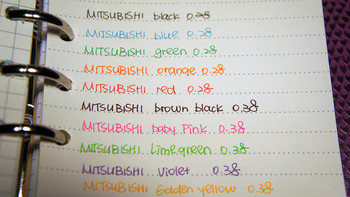 MITSUBISHI black 0.28
MITSUBISHI blue 0.28
MITSUBISHI green 0.28
MITSUBISHI orange 0.28
MITSUBISHI red 0.28
MITSUBISHI brown black 0.38
MITSUBISHI baby Pink 0.38
MITSUBISHI Lime green 0.38
MITSUBISHI violet 0.38
MITSUBISHI Golden yellow 0.38